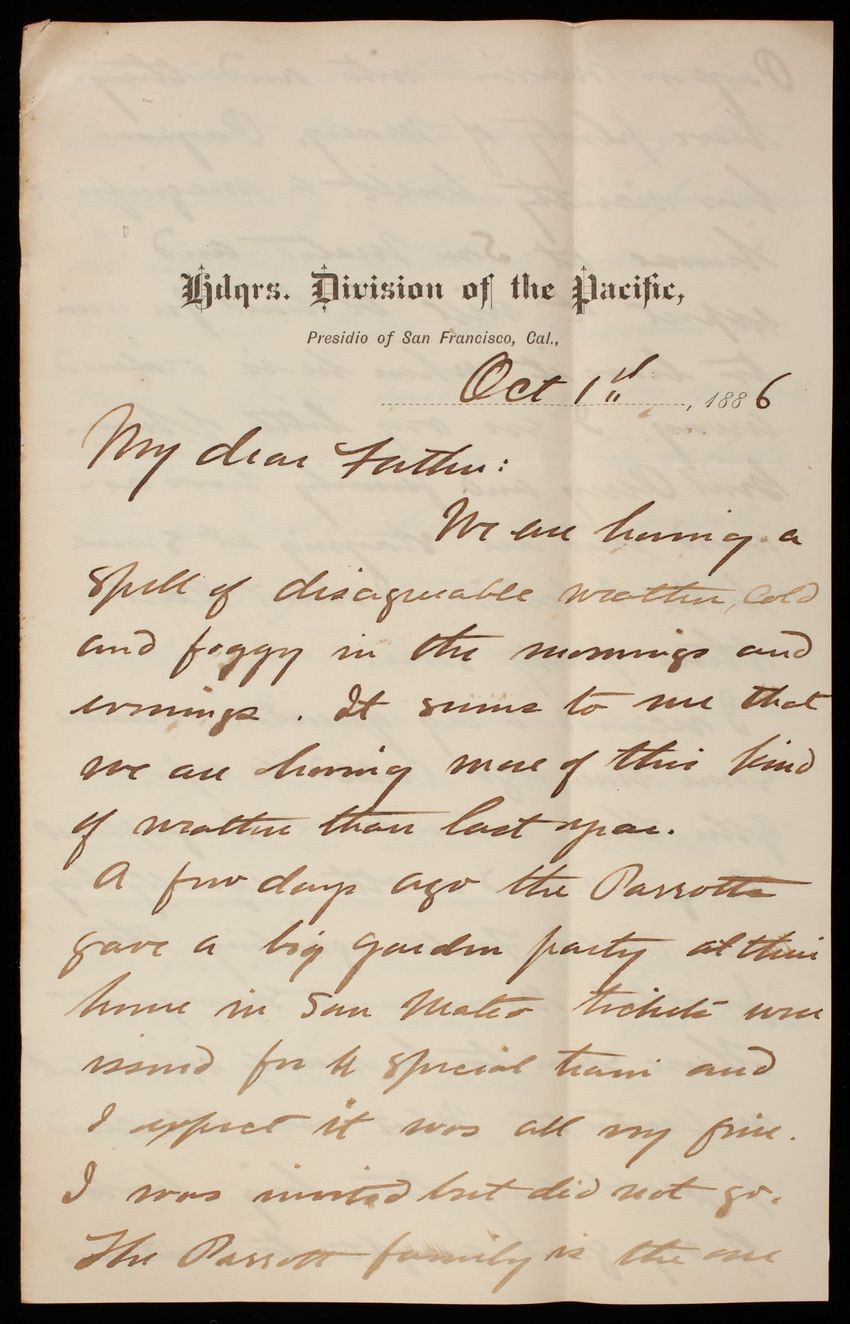 Hdqrs. Division of the Pacific,
Presidio of San Francisco, Cal.,
Oct 1st, 1886
My dear Father:
We are having a
spell of disagreeable weather, cold
and foggy in the mornings and
evenings. It seems to me that
we are having more of this kind
of weather than last year.
A few days ago the Parrotts
gave a big garden party at their
home in San Mateo tickets were
issued for a special train and
I expect it was all very fine.
I was invited but did not go.
The Parrott family is the one